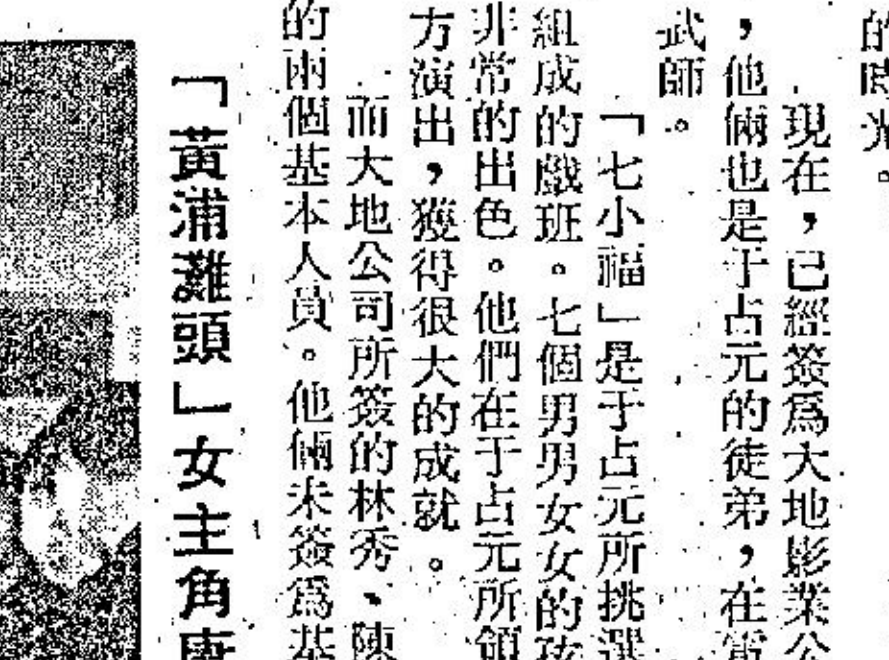 的時光。
現在，已經簽爲大地影業公
，他倆也是于占元的徒弟，在
武師。
「七小福」是于占元所挑選
組成的戲班。七個男男女女的孩
非常的出色。他們在于占元所領
方演出，獲得很大的成就。
而大地公司所簽的林秀、陳
的兩個基本人員。他倆未簽爲基
「黃浦灘頭」女主角唐